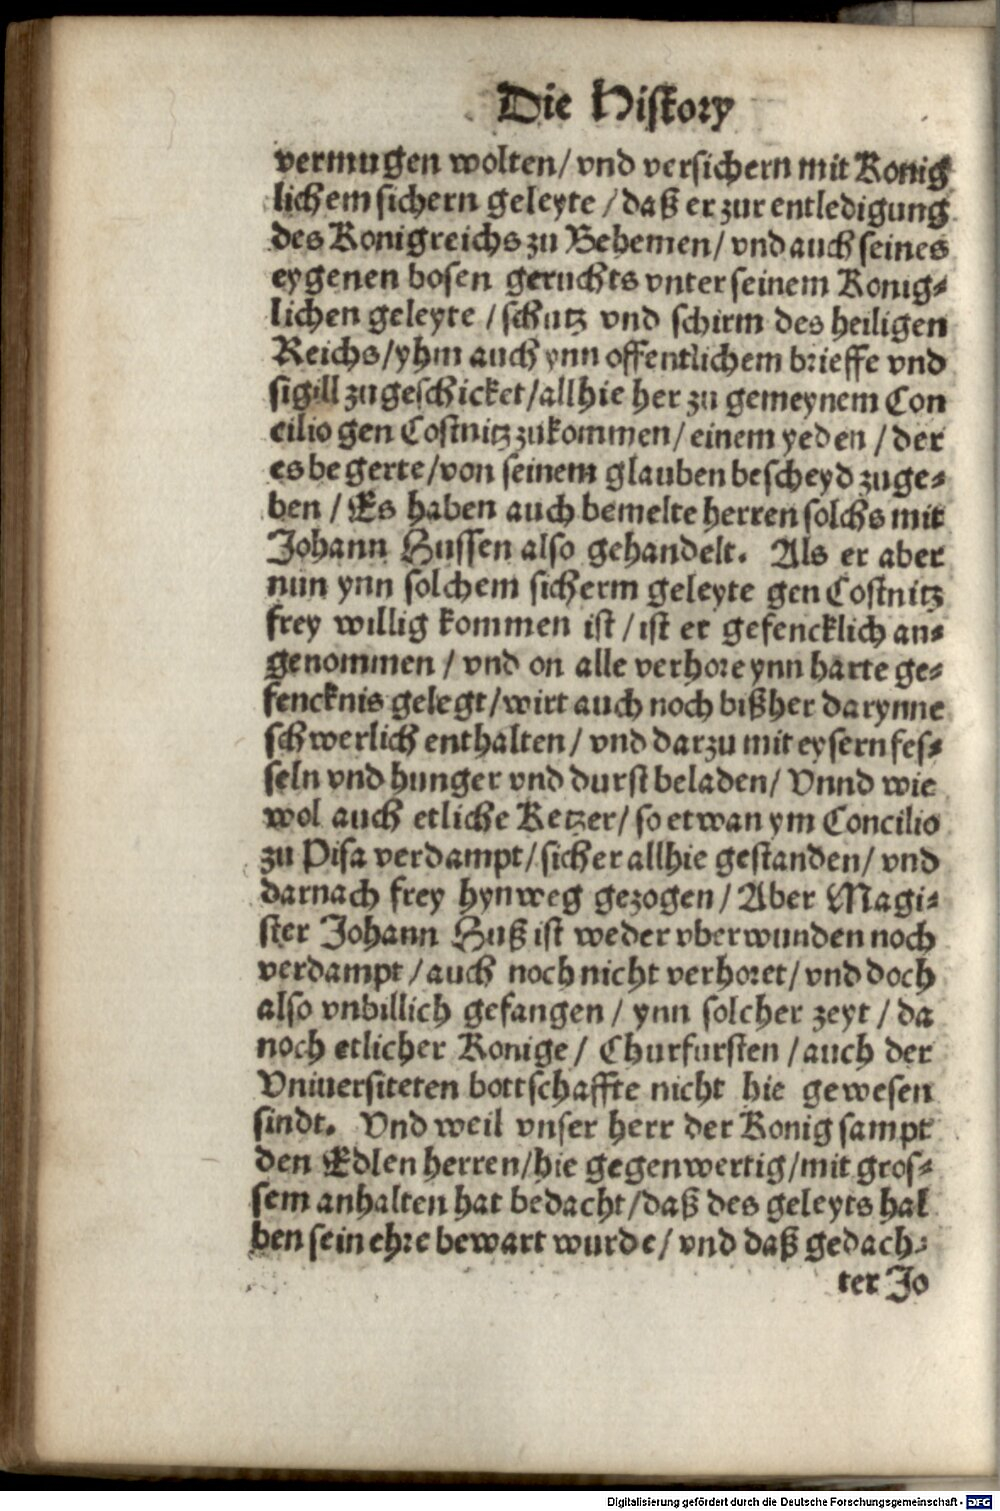 Die History
vermugen wolten/ vnd versichern mit Konig
lichem sichern geleyte / daß er zur entledigung
des Konigreichs zu Behemen/ vnd auch seines
eygenen bosen geruchts vnter seinem Konig⸗
lichen geleyte / schutz vnd schirm des heiligen
Reichs/yhm auch ynn offentlichem brieffe vnd
sigill zugeschicket/allhie her zu gemeynem Con
cilio gen Costnitz zukommen/ einem yeden / der
es begerte/von seinem glauben bescheyd zuge⸗
ben / Es haben auch bemelte herren solchs mit
Johann Hussen also gehandelt. Als er aber
nun ynn solchem sicherm geleyte gen Costnitz
frey willig kommen ist / ist er gefencklich an⸗
genommen / vnd on alle verhore ynn harte ge⸗
fencknis gelegt/wirt auch noch bißher darynne
schwerlich enthalten/ vnd darzu mit eysern fes⸗
seln vnd hunger vnd durst beladen/ Vnnd wie
wol auch etliche Ketzer/ so etwan ym Concilio
zu Pisa verdampt/ sicher allhie gestanden/ vnd
darnach frey hynweg gezogen/ Aber Magi⸗
ster Johann Huß ist weder vberwunden noch
verdampt / auch noch nicht verhoret/ vnd doch
also vnbillich gefangen / ynn solcher zeyt / da
noch etlicher Konige/ Churfursten / auch der
Vniuersiteten bottschaffte nicht hie gewesen
sindt. Vnd weil vnser herr der Konig sampt
den Edlen herren/hie gegenwertig/mit gros⸗
sem anhalten hat bedacht/daß des geleyts hal
ben sein ehre bewart wurde/ vnd daß gedach⸗
ter Jo
Digitalisierung gefördert durch die Deutsche Forschungsgemeinschaft - DFG